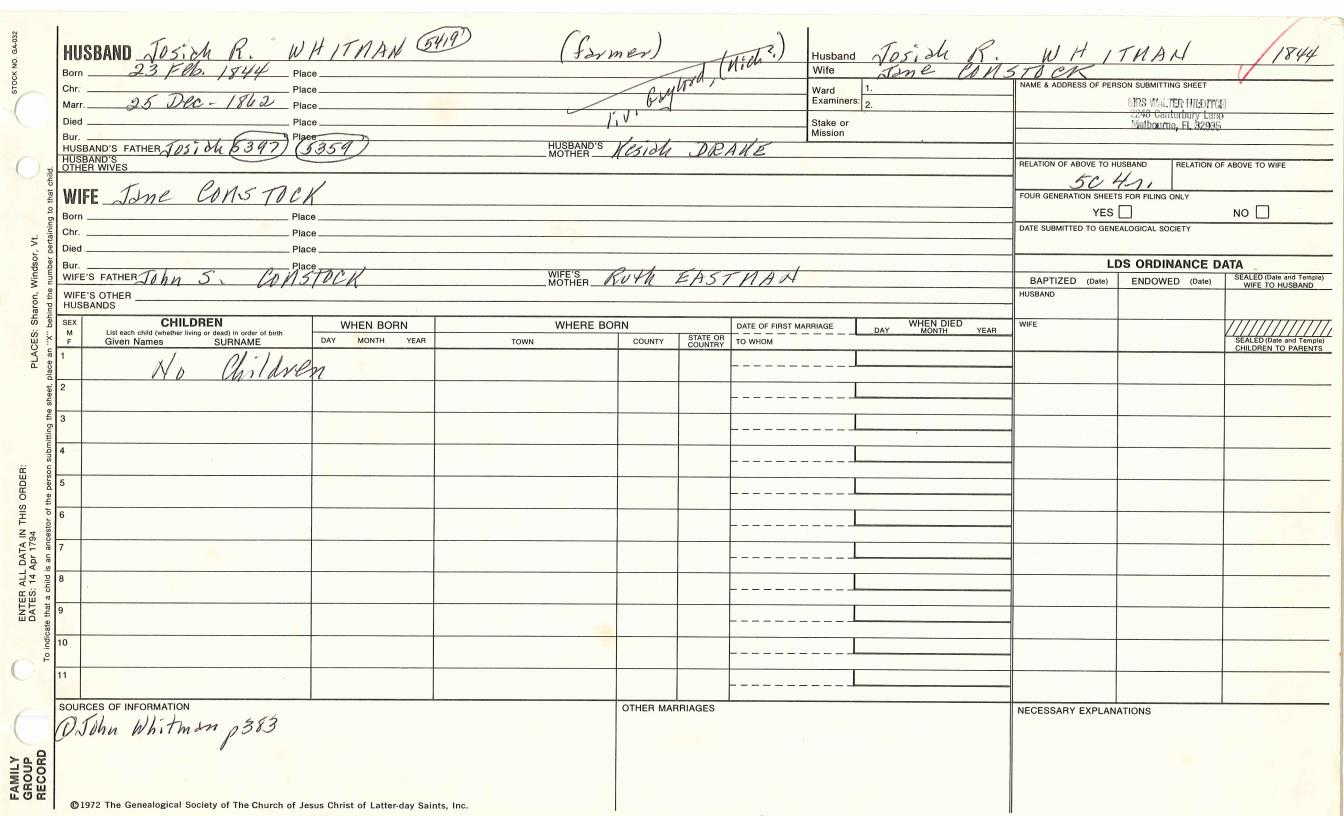 STOCK NO. GA-032
HUSBAND Josiah R. WHITMAN 5419 (farmer)
Born 23 Feb. 1844 Place
Chr. Place
Marr. 25 Dec - 1862 Place
Died Place
Bur. Place
liv. Gaylord, (Mich?)
HUSBAND'S FATHER Josiah 5397 5359 HUSBAND'S MOTHER Kesiah DRAKE
HUSBAND'S OTHER WIVES
WIFE Jane COMSTOCK
Born Place
Chr. Place
Died Place
Bur. Place
WIFE'S FATHER John S. COMSTOCK WIFE'S MOTHER Ruth EASTMAN
WIFE'S OTHER HUSBANDS
Husband Josiah R. WHITMAN 1844
Wife Jane COMSTOCK
Ward Examiners: 1.
2.
Stake or Mission
NAME & ADDRESS OF PERSON SUBMITTING SHEET
MRS WALTER
2248 Canterbury Lane
Melbourne, FL 32935
RELATION OF ABOVE TO HUSBAND RELATION OF ABOVE TO WIFE
5C 4r.
FOUR GENERATION SHEETS FOR FILING ONLY
YES NO
DATE SUBMITTED TO GENEALOGICAL SOCIETY
LDS ORDINANCE DATA
BAPTIZED (Date) ENDOWED (Date) SEALED (Date and Temple) WIFE TO HUSBAND
HUSBAND
WIFE
SEALED (Date and Temple) CHILDREN TO PARENTS
SEX M F
CHILDREN
List each child (whether living or dead) in order of birth
Given Names SURNAME
WHEN BORN
DAY MONTH YEAR
WHERE BORN
TOWN COUNTY STATE OR COUNTRY
DATE OF FIRST MARRIAGE
TO WHOM
WHEN DIED
DAY MONTH YEAR
1 No Children
2
3
4
5
6
7
8
9
10
11
SOURCES OF INFORMATION
① John Whitman p383
OTHER MARRIAGES
NECESSARY EXPLANATIONS
©1972 The Genealogical Society of The Church of Jesus Christ of Latter-day Saints, Inc.
FAMILY GROUP RECORD
ENTER ALL DATA IN THIS ORDER:
DATES: 14 Apr 1794
PLACES: Sharon, Windsor, Vt.
To indicate that a child is an ancestor of the person submitting the sheet, place an "X" behind the number pertaining to that child.